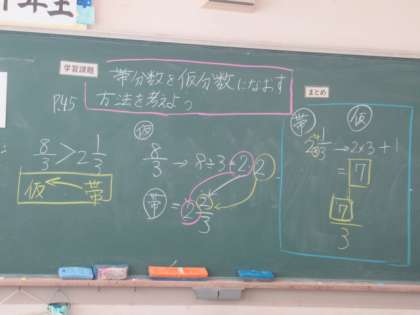 年生
学習課題
帯分数を仮分数になおす
方法を考えよう
P.45
8/3 > 2 1/3
仮 ← 帯
仮
8/3 → 8÷3=2…2
帯 = 2 2/3
まとめ
帯 仮
2 1/3 → 2×3+1
= 7
7/3